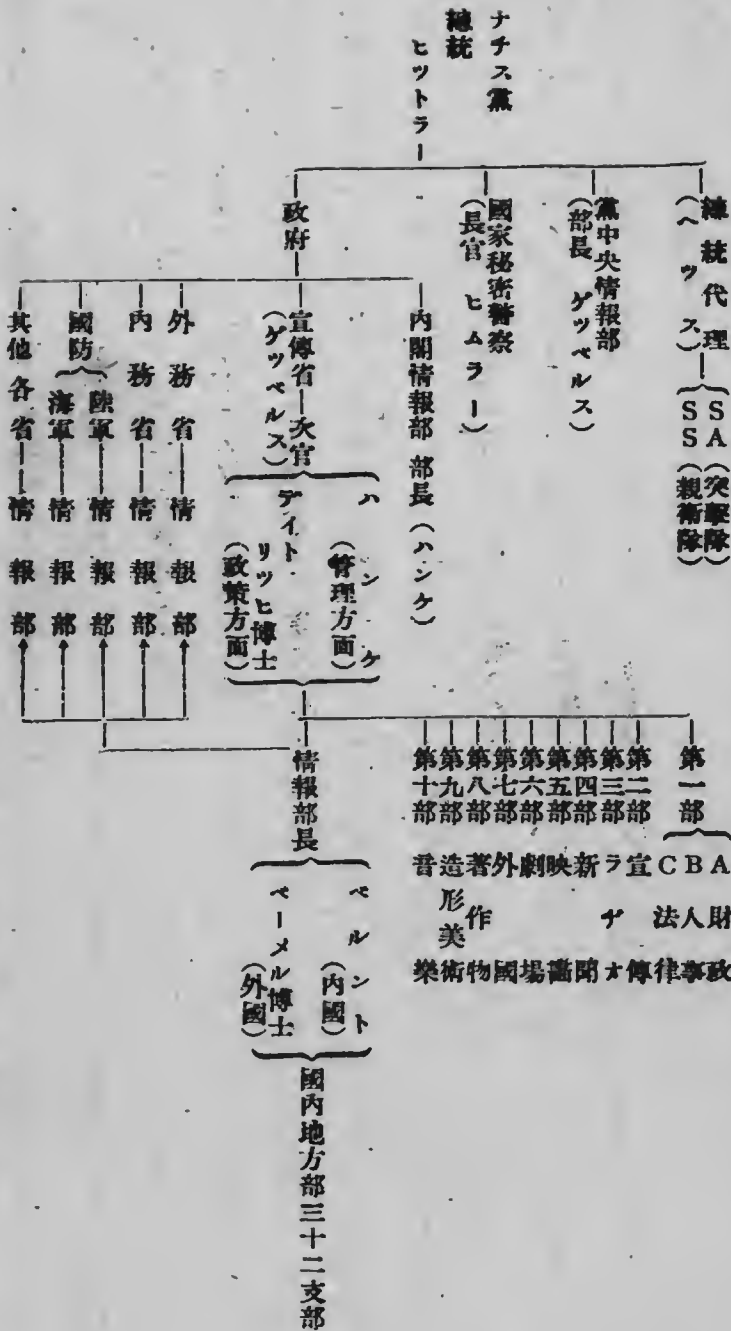 ナチス黨
總統
ヒットラー
總統代理
(ヘッス)
SA(突擊隊)
SS(親衞隊)
黨中央情報部
(部長 ゲッベルス)
國家秘密警察
(長官 ヒムラー)
政府
內閣情報部 部長(ハンケ)
宣傳省
(ゲッベルス)
次官
ハンケ
(管理方面)
デイトリッヒ博士
(政策方面)
外務省
情報部
內務省
情報部
國防
陸軍
情報部
海軍
情報部
其他各省
情報部
第一部
A財政
B人事
C法律
第二部 宣傳
第三部 ラヂオ
第四部 新聞
第五部 映畫
第六部 劇場
第七部 外國
第八部 著作物
第九部 造形美術
第十部 音樂
情報部長
ベルント
(內國)
ベーメル博士
(外國)
國內地方部三十二支部